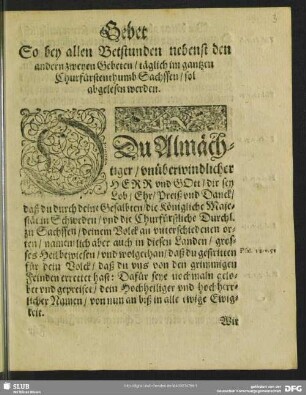 Gebet
So bey allen Betstunden nebenst den
andern zweyen Gebeten / täglich im gantzen
Churfürstenthumb Sachssen / sol
abgelesen werden.
O Du Almäch-
tiger / vnüberwindlicher
HERR vnd GOtt / dir sey
Lob / Ehr / Preiß vnd Danck /
daß du durch deine Gesalbten / die Königliche Maje-
stät in Schweden / vnd die Churfürstliche Durchl.
zu Sachssen / deinem Volck an vnterschiedenen or-
ten / namentlich aber auch in diesen Landen / gros-
ses Heil bewiesen / vnd wolgethan / daß du gestritten
für dein Volck / daß du vns von den grimmigen
Feinden errettet hast: Dafür seye nochmaln gelo-
bet vnd gepreiset / dein Hochheiliger vnd hochherr-
licher Namen / von nun an biß in alle ewige Ewig-
keit.
Wir
3
SLUB